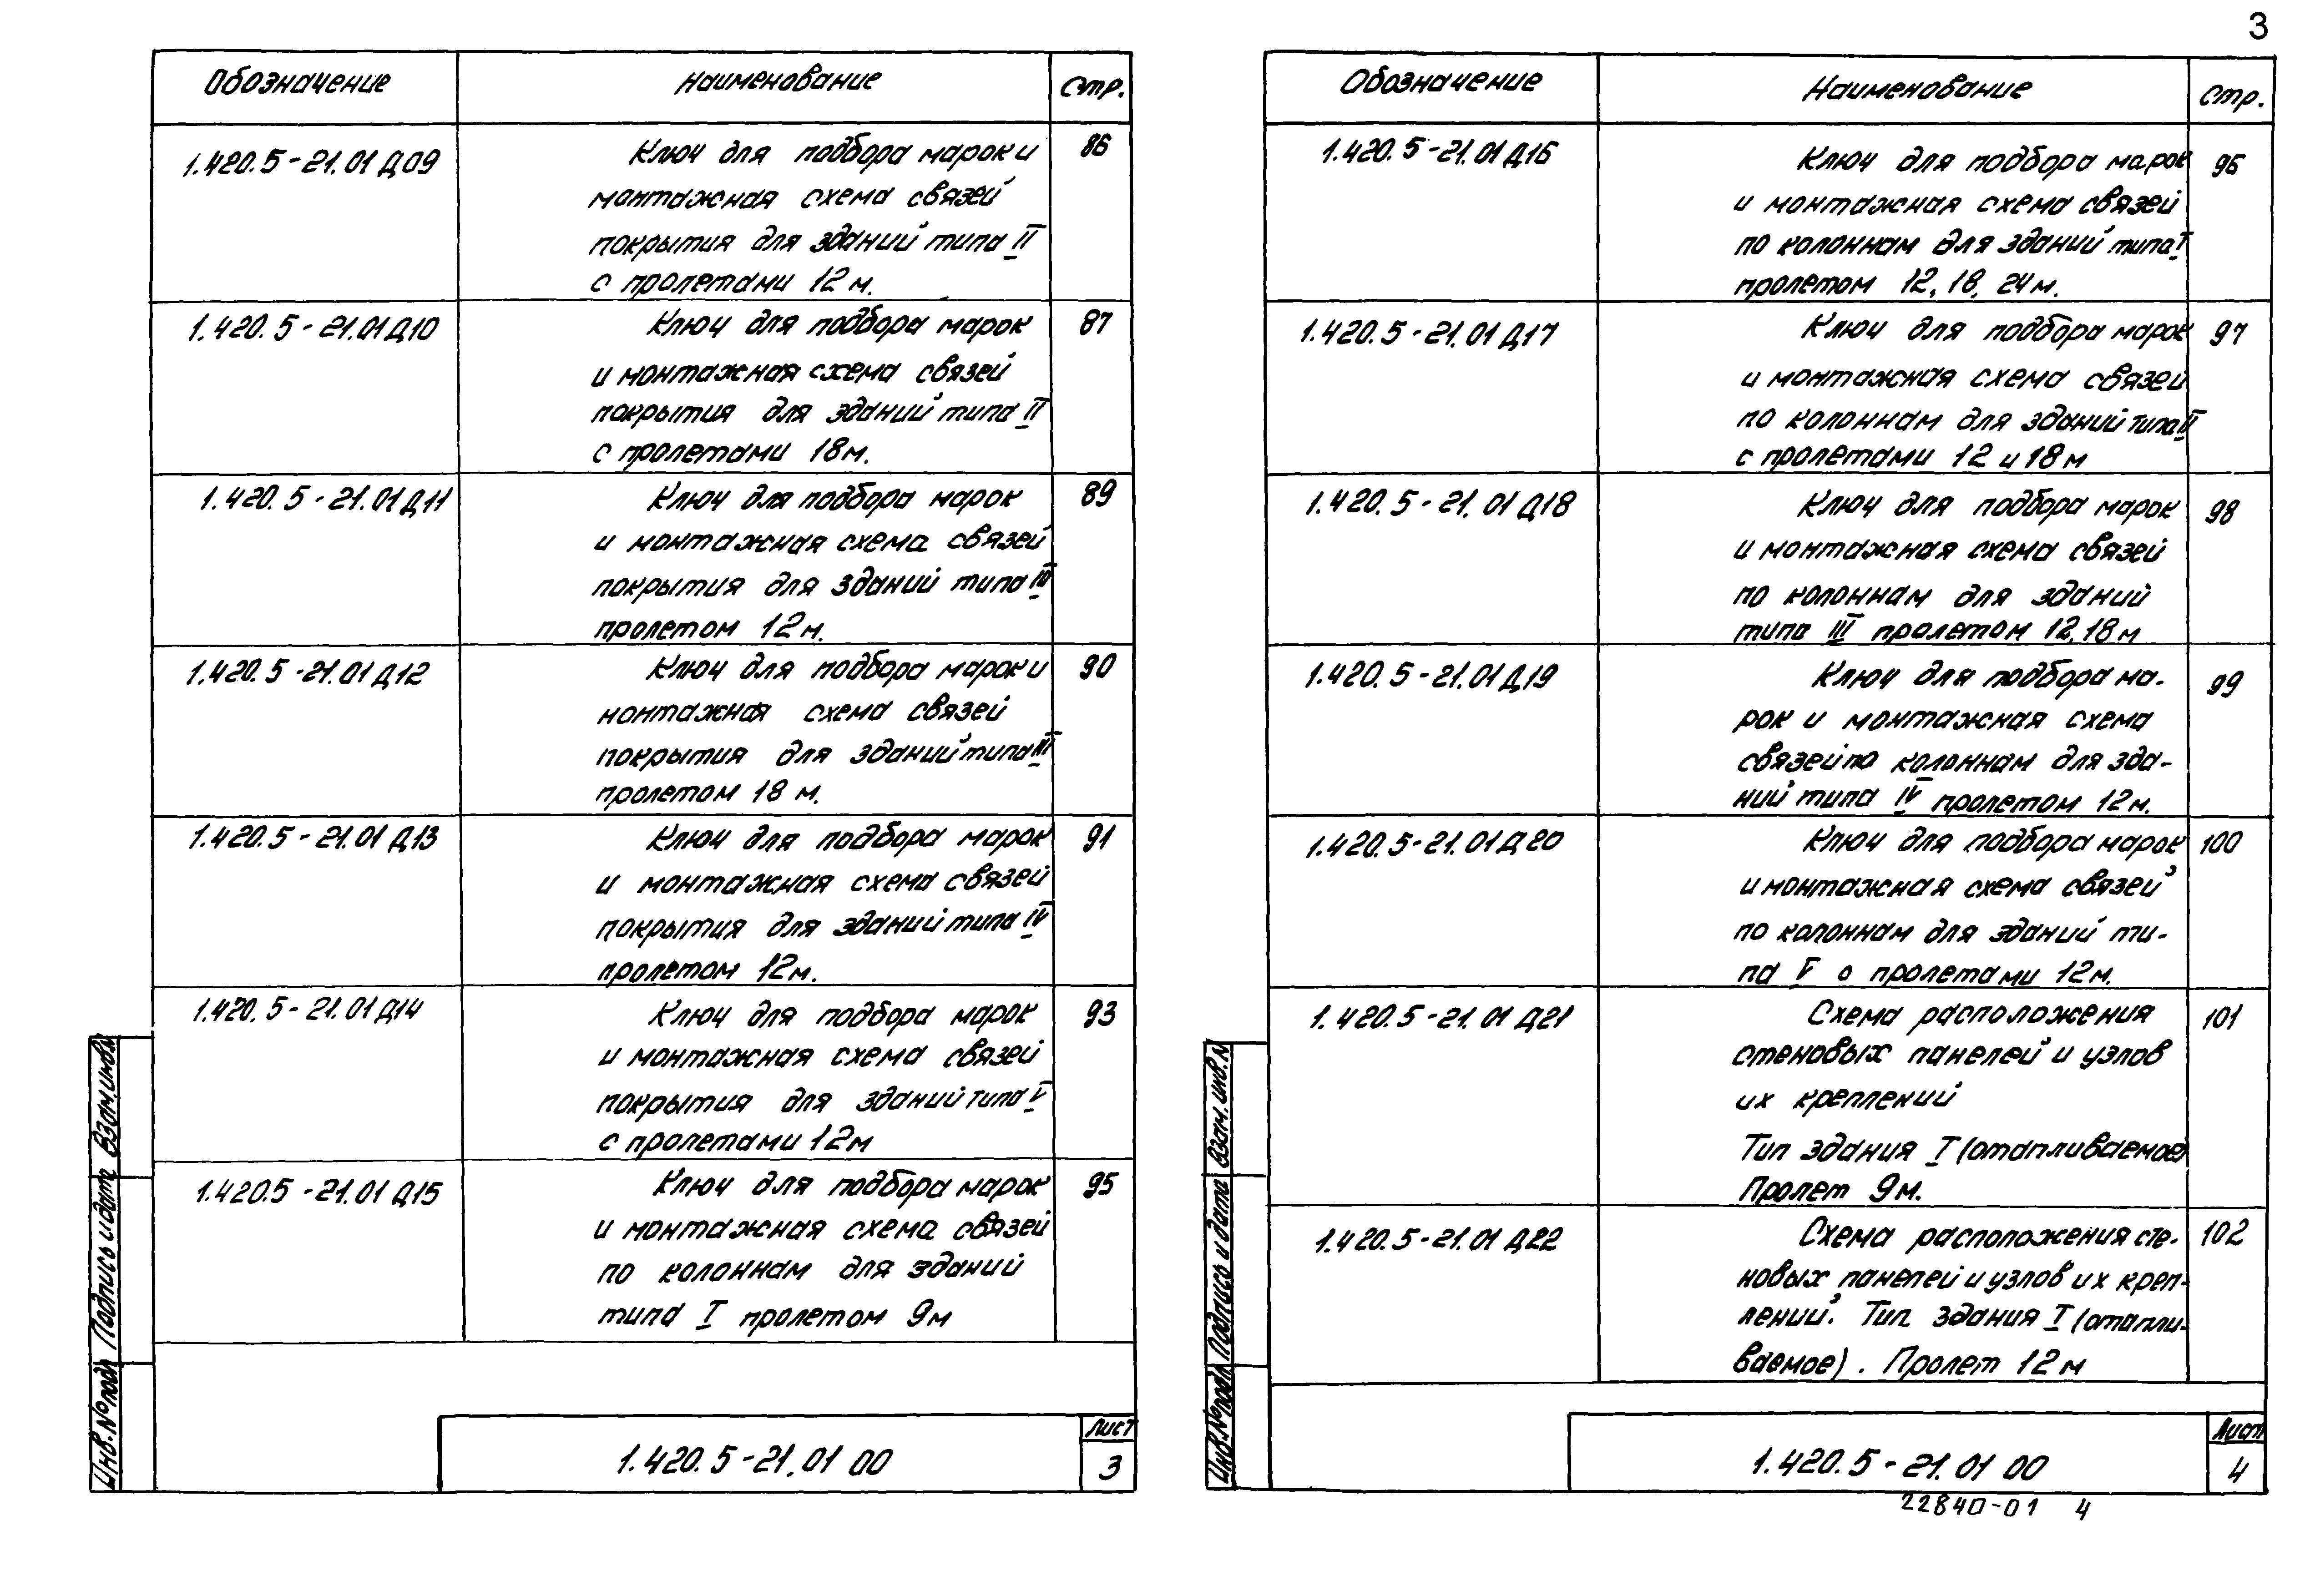 3
Обозначение Наименование Стр.
1.420.5-21.01 Д09 Ключ для подбора марок и 86
монтажная схема связей
покрытия для зданий типа II
с пролетами 12 м.
1.420.5-21.01 Д10 Ключ для подбора марок 87
и монтажная схема связей
покрытия для зданий типа II
с пролетами 18 м.
1.420.5-21.01 Д11 Ключ для подбора марок 89
и монтажная схема связей
покрытия для зданий типа III
пролетом 12 м.
1.420.5-21.01 Д12 Ключ для подбора марок и 90
монтажная схема связей
покрытия для зданий типа III
пролетом 18 м.
1.420.5-21.01 Д13 Ключ для подбора марок 91
и монтажная схема связей
покрытия для зданий типа IV
пролетом 12 м.
1.420.5-21.01 Д14 Ключ для подбора марок 93
и монтажная схема связей
покрытия для зданий типа V
с пролетами 12 м
1.420.5-21.01 Д15 Ключ для подбора марок 95
и монтажная схема связей
по колоннам для зданий
типа I пролетом 9 м
Инв.№ подл Подпись и дата Взам.инв.№
1.420.5-21.01 00 Лист
3
Обозначение Наименование Стр.
1.420.5-21.01 Д16 Ключ для подбора марок 96
и монтажная схема связей
по колоннам для зданий типа I
пролетом 12, 18, 24 м.
1.420.5-21.01 Д17 Ключ для подбора марок 97
и монтажная схема связей
по колоннам для зданий типа II
с пролетами 12 и 18 м
1.420.5-21.01 Д18 Ключ для подбора марок 98
и монтажная схема связей
по колоннам для зданий
типа III пролетом 12, 18 м
1.420.5-21.01 Д19 Ключ для подбора ма- 99
рок и монтажная схема
связей по колоннам для зда-
ний типа IV пролетом 12 м.
1.420.5-21.01 Д20 Ключ для подбора марок 100
и монтажная схема связей
по колоннам для зданий ти-
па V с пролетами 12 м.
1.420.5-21.01 Д21 Схема расположения 101
стеновых панелей и узлов
их креплений
Тип здания I (отапливаемое)
Пролет 9 м.
1.420.5-21.01 Д22 Схема расположения сте- 102
новых панелей и узлов их креп-
лений. Тип здания I (отапли-
ваемое). Пролет 12 м
Инв.№ подл Подпись и дата Взам.инв.№
1.420.5-21.01 00 Лист
4
22840-01 4